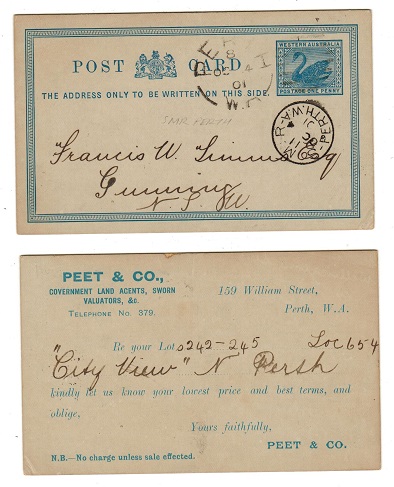 WESTERN AUSTRALIA
POST CARD
POSTAGE ONE PENNY
THE ADDRESS ONLY TO BE WRITTEN ON THIS SIDE.
PERTH
8
DE 4
01
W.A
S.M.R-PERTH.W.A
SMR PERTH
Francis W. Simms Esq
Gunning
N.S.W.
PEET & CO.,
GOVERNMENT LAND AGENTS, SWORN
VALUATORS, &c.
TELEPHONE NO. 379.
159 William Street,
Perth, W.A.
Re your Lots 242-245 Loc 654
"City View" N Perth
kindly let us know your lowest price and best terms, and
oblige,
Yours faithfully,
PEET & CO.
N.B.—No charge unless sale effected.